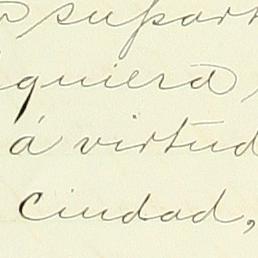 su part
quiera
á virtud
ciudad,